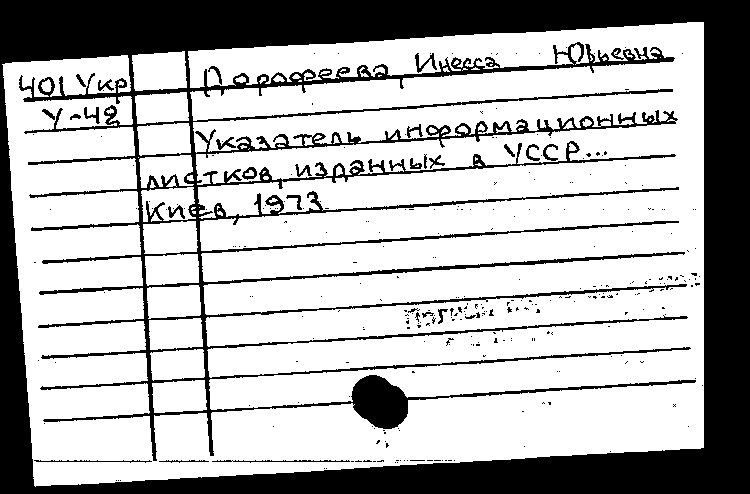 401 Укр Дорофеева, Инесса Юрьевна
У-42
Указатель информационных
листков, изданных в УССР...
Киев, 1973